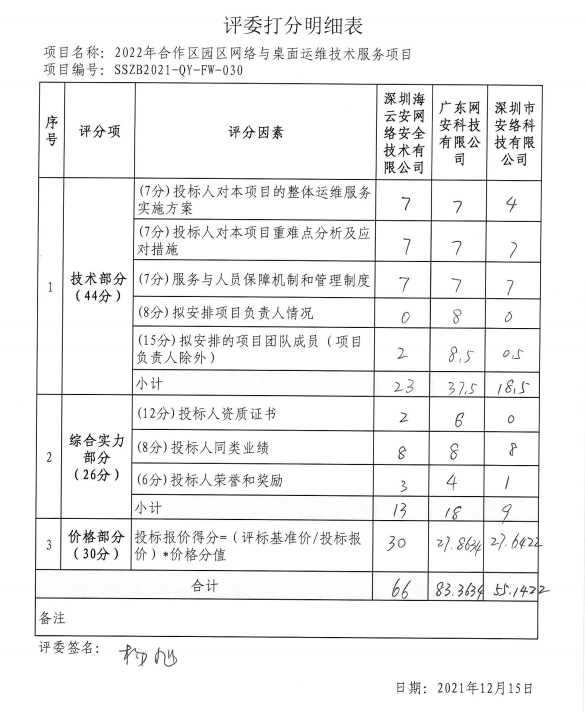 评委打分明细表
项目名称: 2022年合作区园区网络与桌面运维技术服务项目
项目编号: SSZB2021-QY-FW-030
序号 评分项 评分因素 深圳海云安网络安全技术有限公司 广东网安科技有限公司 深圳市安络科技有限公司
1 技术部分(44分)
(7分)投标人对本项目的整体运维服务实施方案 7 7 4
(7分)投标人对本项目重难点分析及应对措施 7 7 7
(7分)服务与人员保障机制和管理制度 7 7 7
(8分)拟安排项目负责人情况 0 8 0
(15分)拟安排的项目团队成员(项目负责人除外) 2 8.5 0.5
小计 23 37.5 18.5
2 综合实力部分(26分)
(12分)投标人资质证书 2 6 0
(8分)投标人同类业绩 8 8 8
(6分)投标人荣誉和奖励 3 4 1
小计 13 18 9
3 价格部分(30分) 投标报价得分=(评标基准价/投标报价)*价格分值 30 27.8634 27.6422
合计 66 83.3634 55.1422
备注
评委签名:
日期: 2021年12月15日